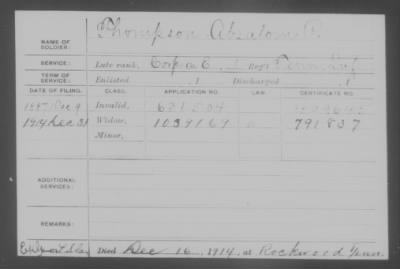 Thompson Absalom P.
NAME OF SOLDIER:
SERVICE: Late rank, Corp Co. C, 1 Regt. Tenn Inf
TERM OF SERVICE: Enlisted , 1 Discharged , 1
DATE OF FILING. CLASS. APPLICATION NO. LAW. CERTIFICATE NO.
Dec 9 Invalid, 631504
1914 Dec 31 Widow, 1039169 791837
Minor,
ADDITIONAL SERVICES:
REMARKS:
Died Dec 16, 1914, at Rockwood Tenn.